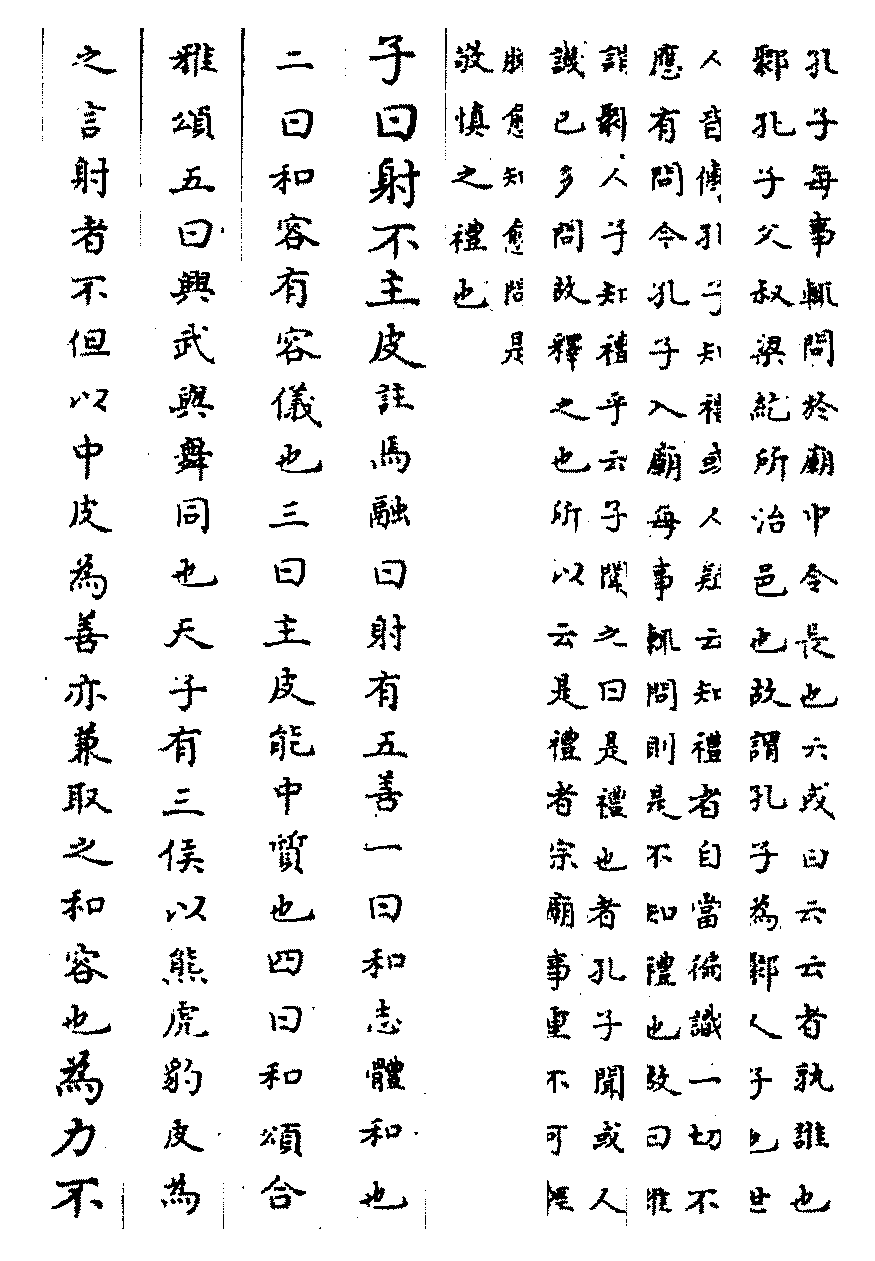 孔子每事輒問於廟中令長也六或曰云云者孰誰也
鄹孔子父叔梁紇所治邑也故謂孔子為鄹人子也世
人皆傳孔子知禮或人疑云知禮者自當徧識一切不
應有問令孔子入廟每事輒問則是不知禮也故曰誰
謂鄹人子知禮乎云子聞之曰是禮也者孔子聞或人
譏已多問故釋之也所以云是禮者宗廟事重不可輕
脫愈知愈問是
敬慎之禮也
子曰射不主皮註馬融曰射有五善一曰和志體和也
二曰和容有容儀也三曰主皮能中質也四曰和頌合
雅頌五曰興武與舞同也天子有三侯以熊虎豹皮為
之言射者不但以中皮為善亦兼取之和容也為力不